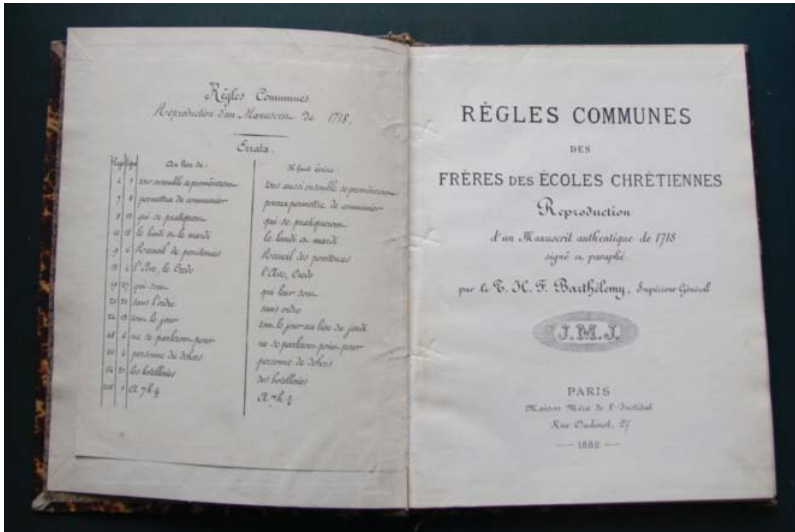 Règles Communes.
Reproduction d'un Manuscrit de 1718.
Errata.
Page ligne Au lieu de: Il faut écrire:
6 1 tous ensemble se promèneront tous aussi ensemble se promèneront
7 8 permettra de communier pourra permettre de communier
qui se pratiquent qui se pratiqueront
le lundi ou le mardi le lundi ou mardi
9 6 Recueil de pénitences Recueil des pénitences
l'Ave, le Credo l'Ave, Credo
qui sont qui leur sont
20 20 sans l'ordre sans ordre
tout le jour tout le jour au lieu du jeudi
ne se parleront pour ne se parleront point pour
personne du dehors personne de dehors
les hotelleries des hotelleries
et 7h ½ et 7h ½
RÈGLES COMMUNES
DES
FRÈRES DES ÉCOLES CHRÉTIENNES
Reproduction
d'un Manuscrit authentique de 1718
signé et paraphé
par le T. H. F. Barthélemy, Supérieur Général
J.M.J.
PARIS
Maison Mère de l'Institut
Rue Oudinot, 27
— 1882 —